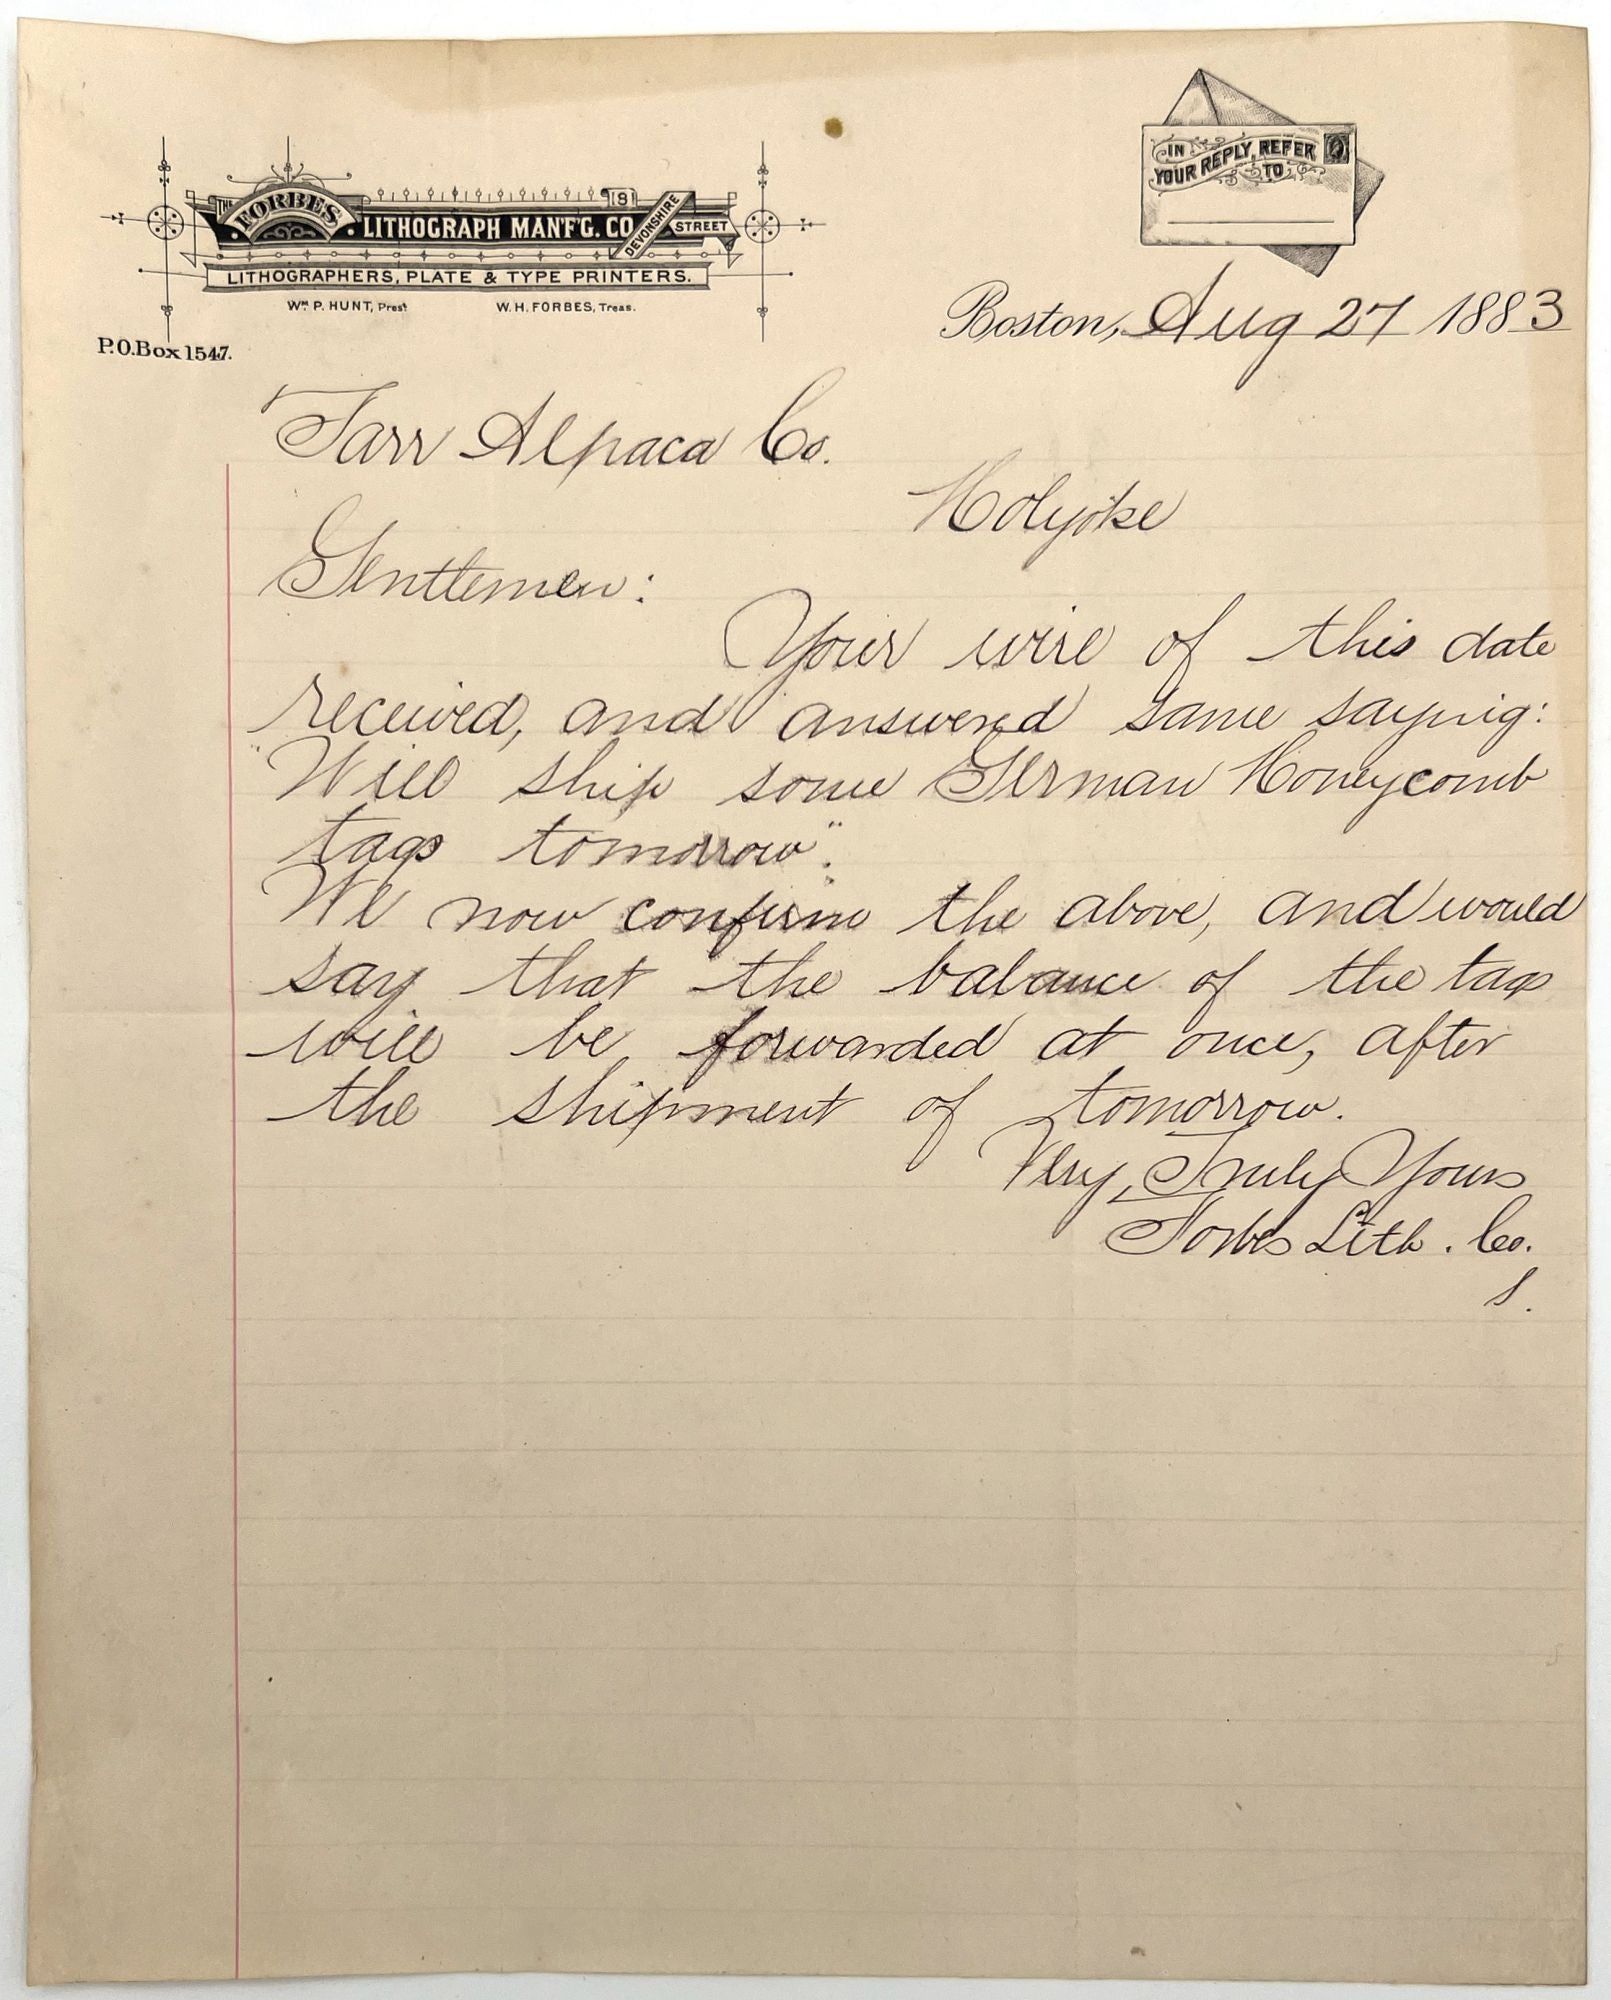 THE FORBES LITHOGRAPH MAN'F'G. CO. 181 DEVONSHIRE STREET
LITHOGRAPHERS, PLATE & TYPE PRINTERS.
Wm. P. HUNT, Prest. W. H. FORBES, Treas.
P.O. Box 1547.
IN YOUR REPLY, REFER TO
Boston, Aug 27 1883
Farr Alpaca Co.
Holyoke
Gentlemen:
Your wire of this date
received, and answered same saying:
"Will ship some German Honeycomb
tags tomorrow".
We now confirm the above, and would
say that the balance of the tags
will be forwarded at once, after
the shipment of tomorrow.
Very Truly Yours
Forbes Lith. Co.
S.